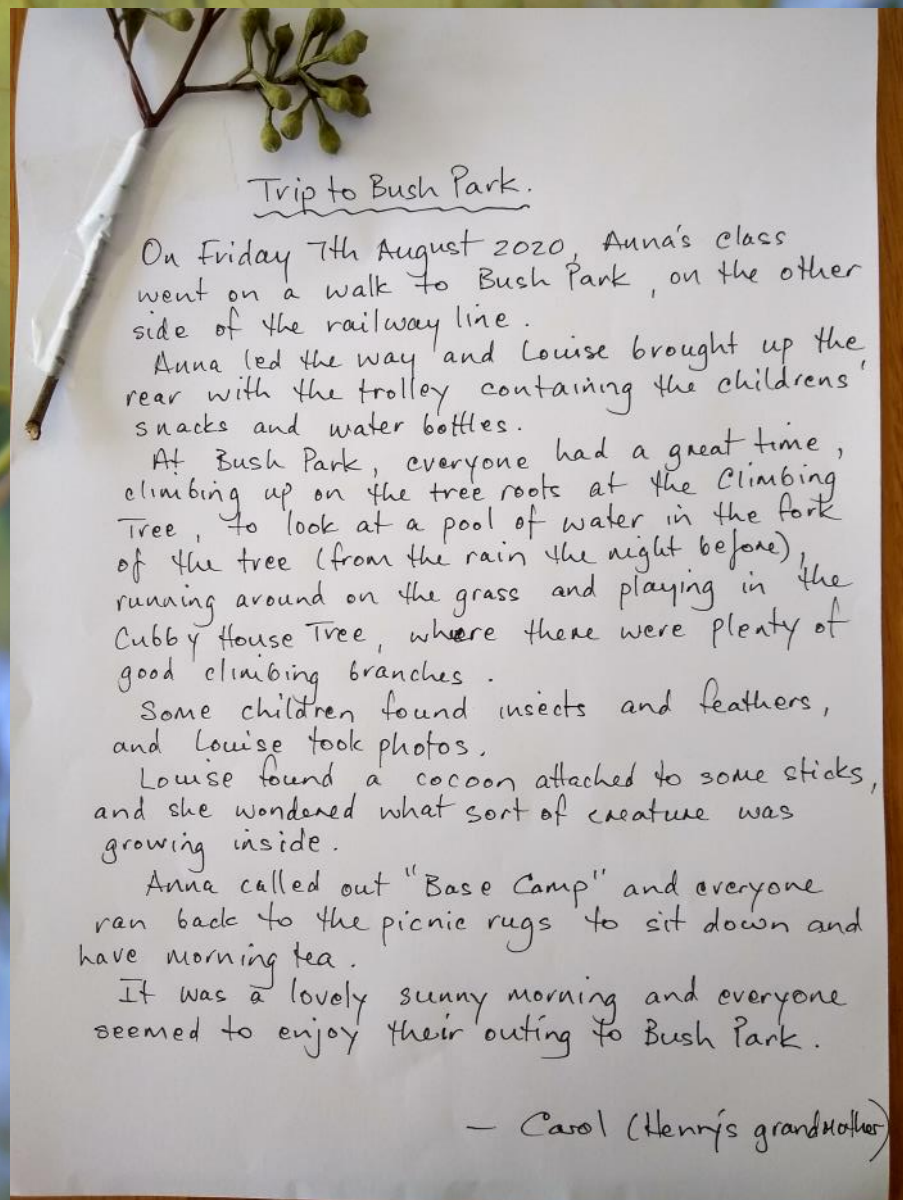 Trip to Bush Park.
On Friday 7th August 2020, Anna's class
went on a walk to Bush Park, on the other
side of the railway line.
Anna led the way and Louise brought up the
rear with the trolley containing the childrens'
snacks and water bottles.
At Bush Park, everyone had a great time,
climbing up on the tree roots at the Climbing
Tree, to look at a pool of water in the fork
of the tree (from the rain the night before),
running around on the grass and playing in the
Cubby House Tree, where there were plenty of
good climbing branches.
Some children found insects and feathers,
and Louise took photos.
Louise found a cocoon attached to some sticks,
and she wondered what sort of creature was
growing inside.
Anna called out "Base Camp" and everyone
ran back to the picnic rugs to sit down and
have morning tea.
It was a lovely sunny morning and everyone
seemed to enjoy their outing to Bush Park.
— Carol (Henry's grandmother)